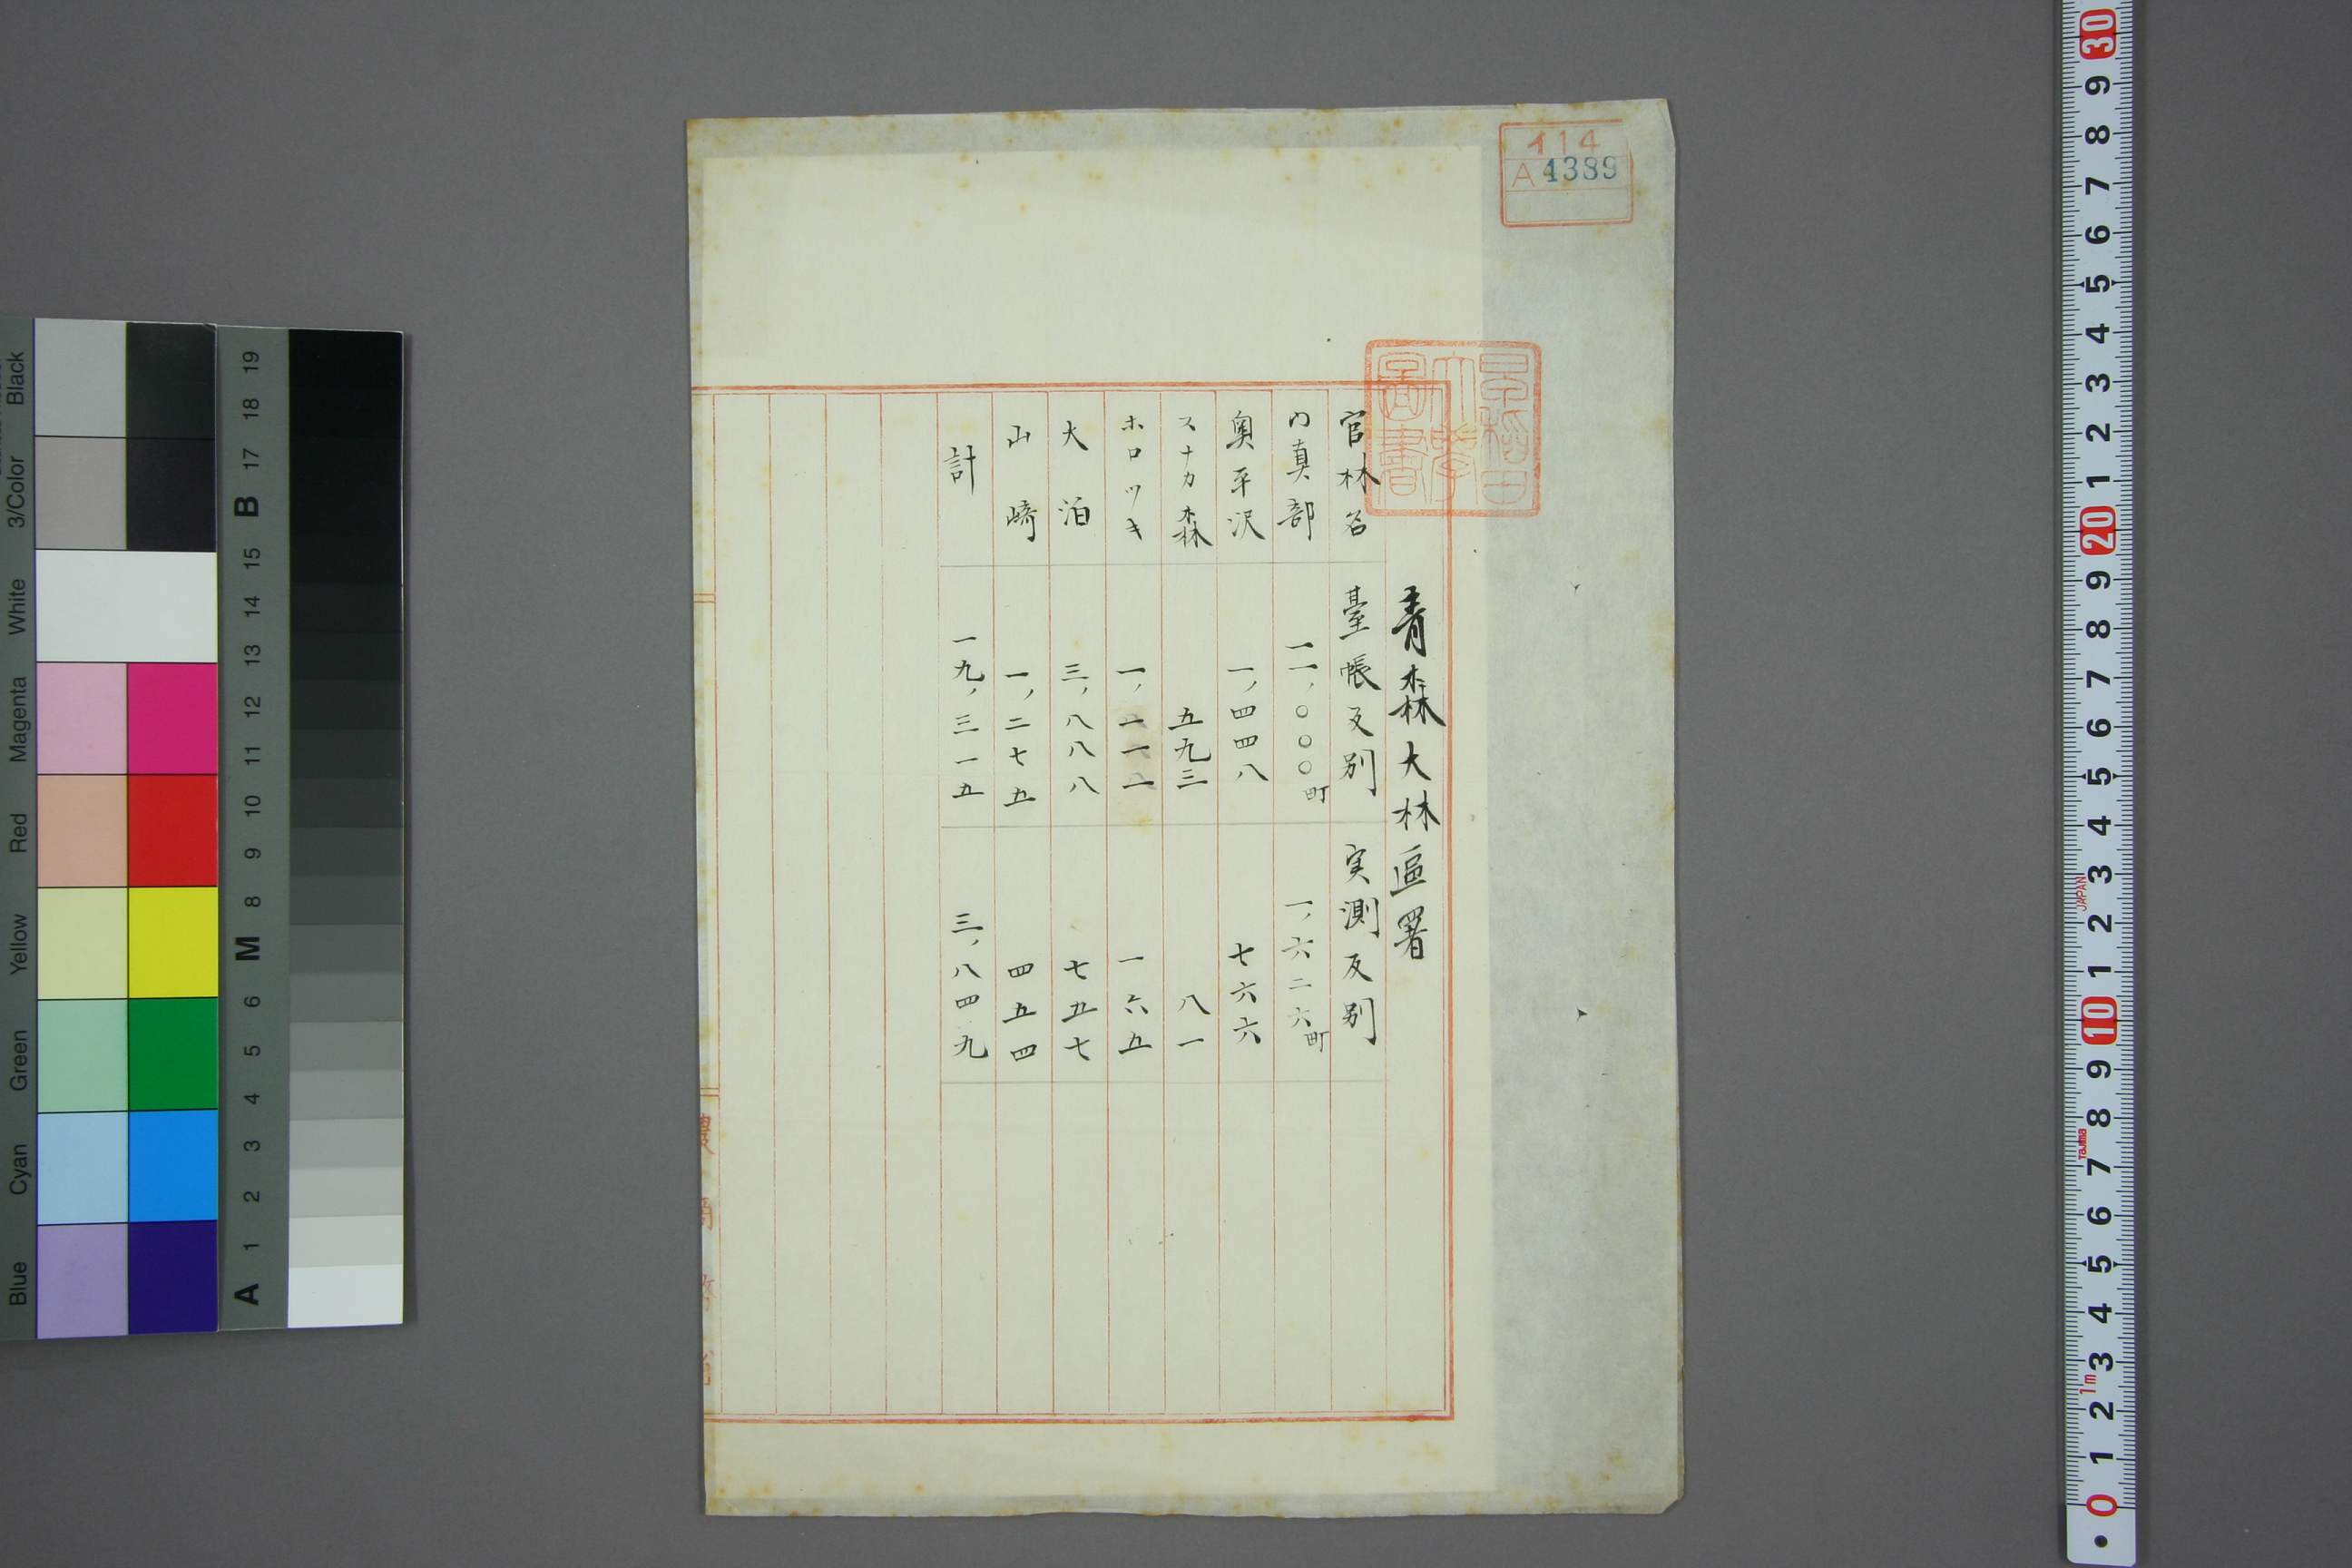 イ14
A 4389
早稲田
大學
圖書
青森大林區署
官林名 臺帳反別 実測反別
内真部 一一,〇〇〇町 一,六二六町
奥平沢 一,四四八 七六六
スナカ森 五九三 八一
ホロツキ 一,一一一 一六五
大泊 三,八八八 七五七
山崎 一,二七五 四五四
計 一九,三一五 三,八四九
農商務省
Blue Cyan Green Yellow Red Magenta White 3/Color Black
A 1 2 3 4 5 6 M 8 9 10 11 12 13 14 15 B 17 18 19
0 1 2 3 4 5 6 7 8 9 10 1 2 3 4 5 6 7 8 9 20 1 2 3 4 5 6 7 8 9 30
1m
Tajima
JAPAN